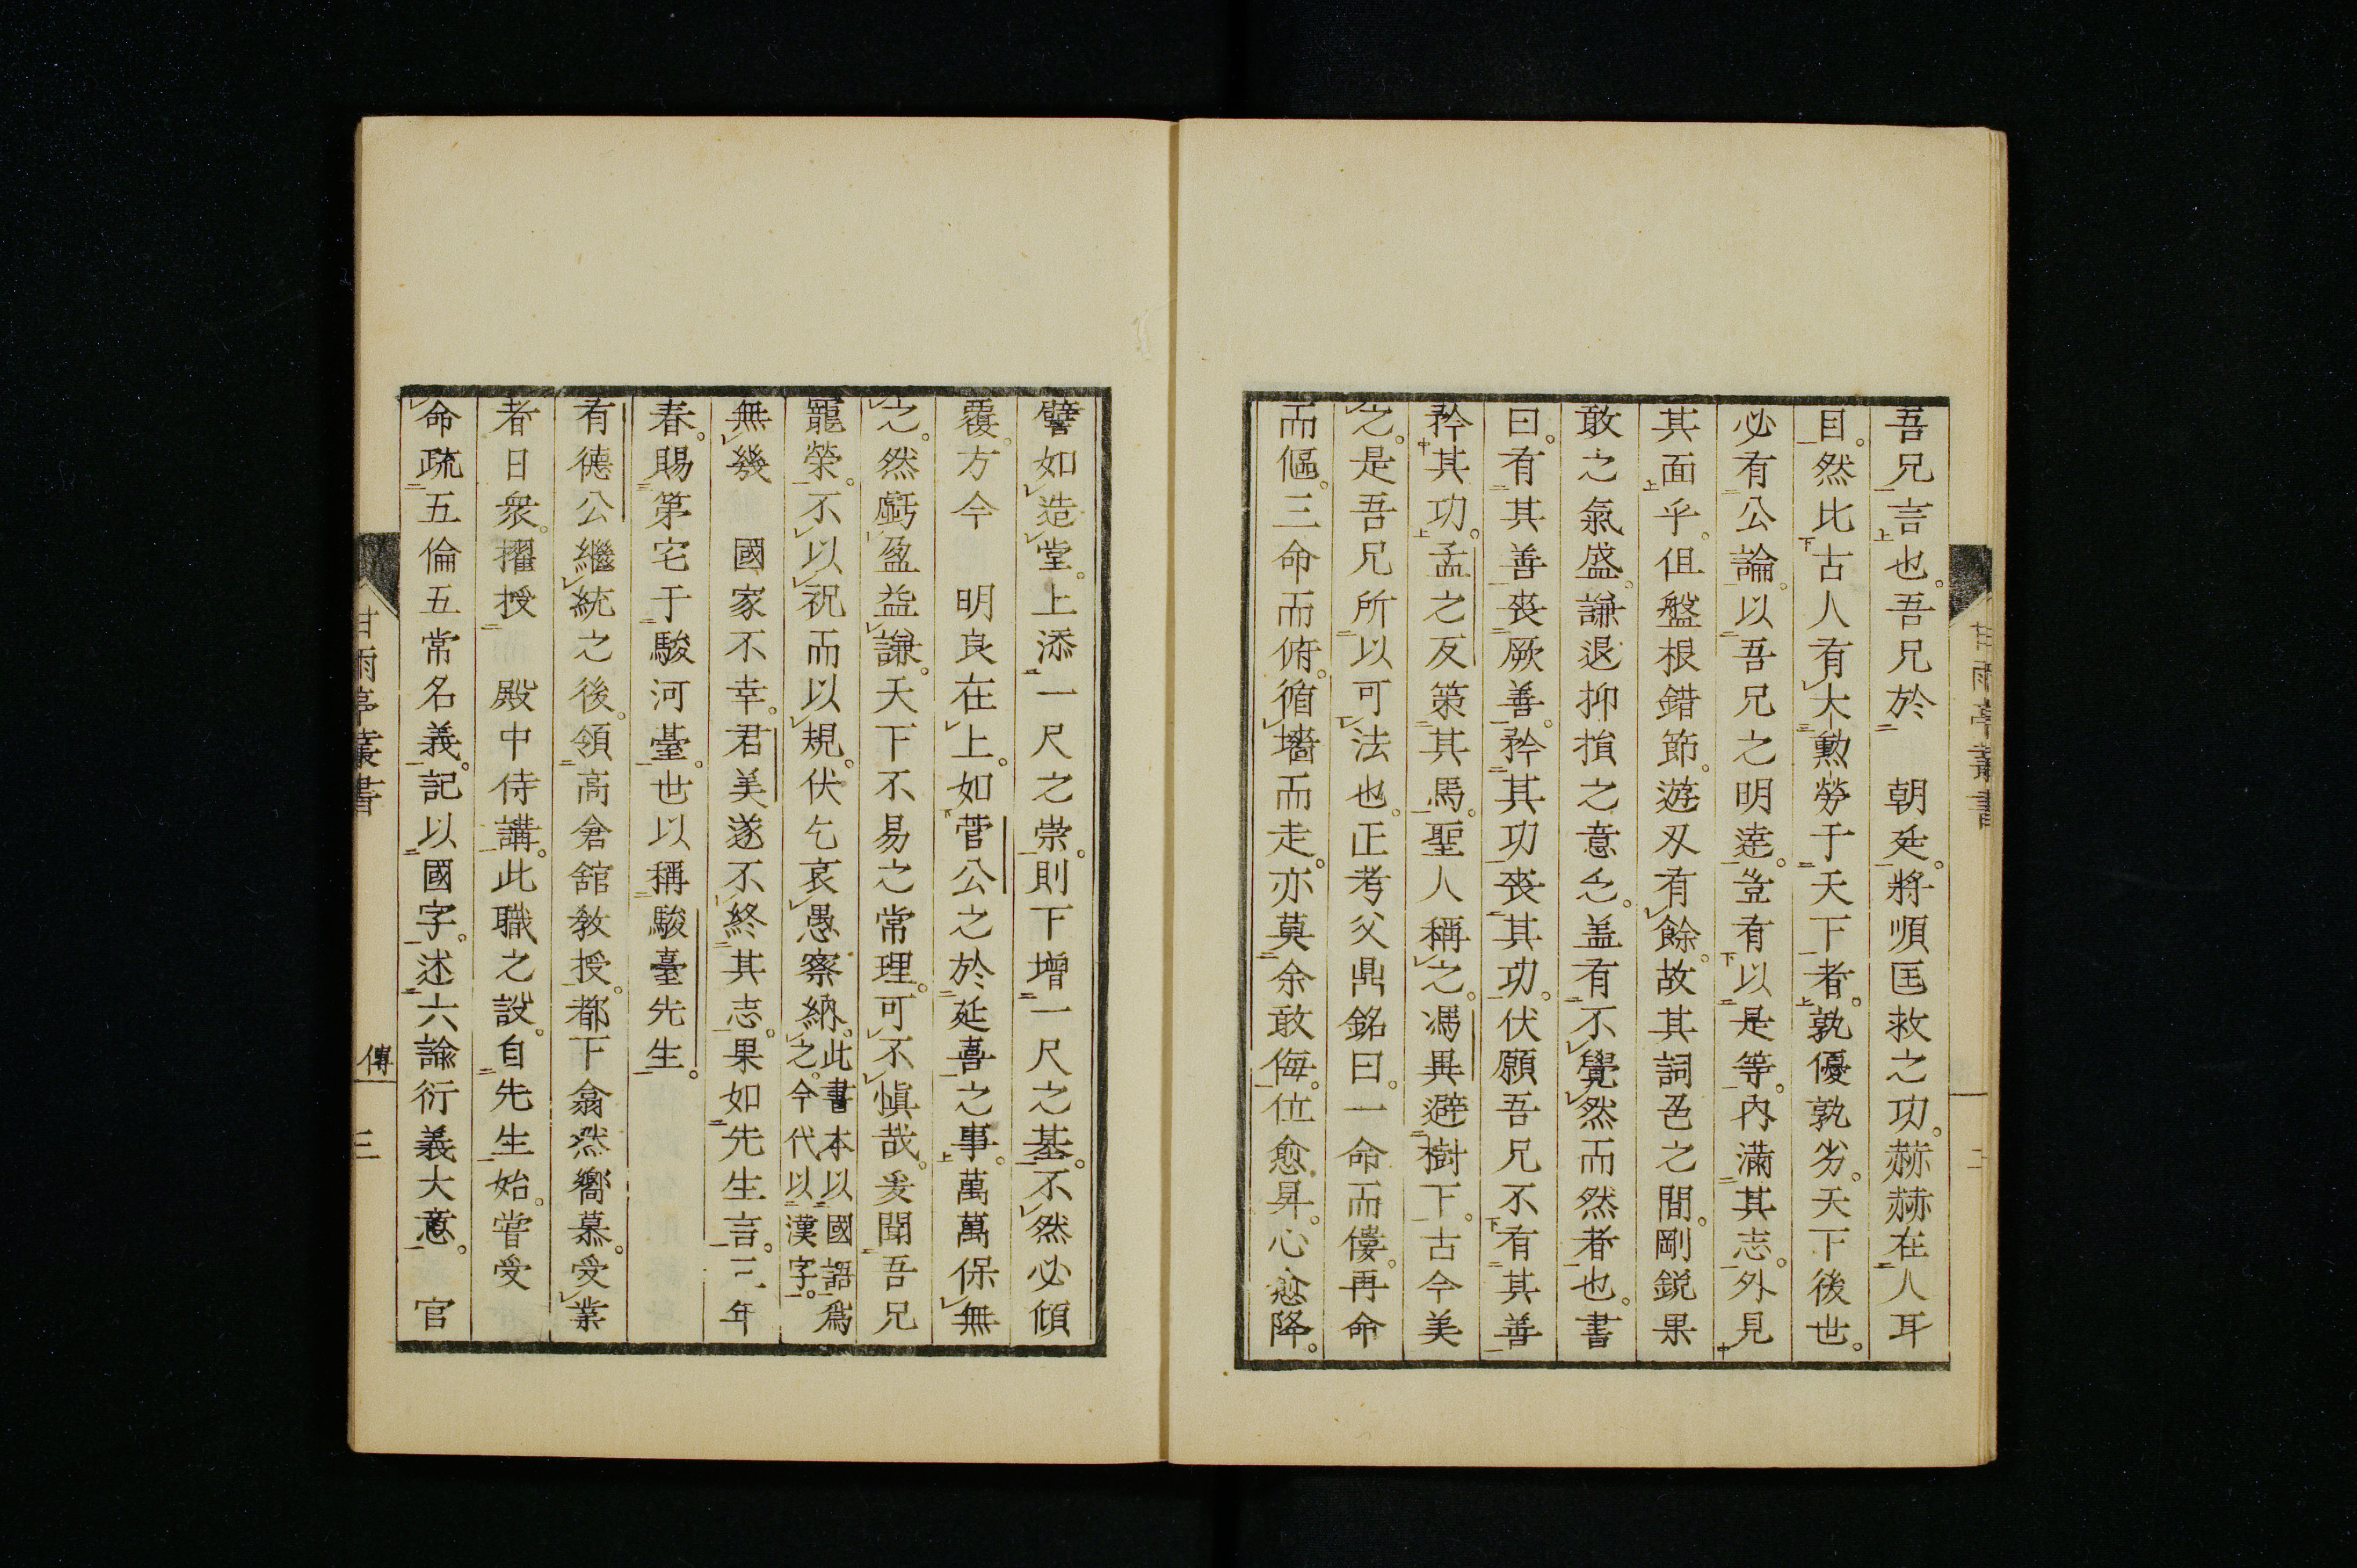 吾兄言也。吾兄於　朝廷。將順匡救之功。赫赫在人耳
目。然比古人有大勲勞于天下者。孰優孰劣。天下後世。
必有公論。以吾兄之明達。豈有以是等。内滿其志。外見
其面乎。但盤根錯節。遊刃有餘。故其詞色之間。剛鋭果
敢之氣盛。謙退抑損之意乏。盖有不覺然而然者也。書
曰。有其善喪厥善。矜其功喪其功。伏願吾兄不有其善
矜其功。孟之反策其馬。聖人稱之。馮異避樹下。古今美
之。是吾兄所以可法也。正考父鼎銘曰。一命而僂。再命
而傴。三命而俯。循墻而走。亦莫余敢侮。位愈昇。心愈降。
譬如造堂。上添一尺之崇。則下增一尺之基。不然必傾
覆。方今　明良在上。如菅公之於延喜之事。萬萬保無
之。然虧盈益謙。天下不易之常理。可不愼哉。爰聞吾兄
寵榮。不以祝而以規。伏乞哀愚察納。此書本以國語爲
之。今代以漢字。
無幾　國家不幸。君美遂不終其志。果如先生言。二年
春。賜第宅于駿河臺。世以稱駿臺先生。
有德公繼統之後。領高倉舘敎授。都下翕然嚮慕。受業
者日衆。擢授　殿中侍講。此職之設。自先生始。嘗受
命疏五倫五常名義。記以國字。述六諭衍義大意。　官
甘雨亭叢書
傳
三
甘雨亭叢書